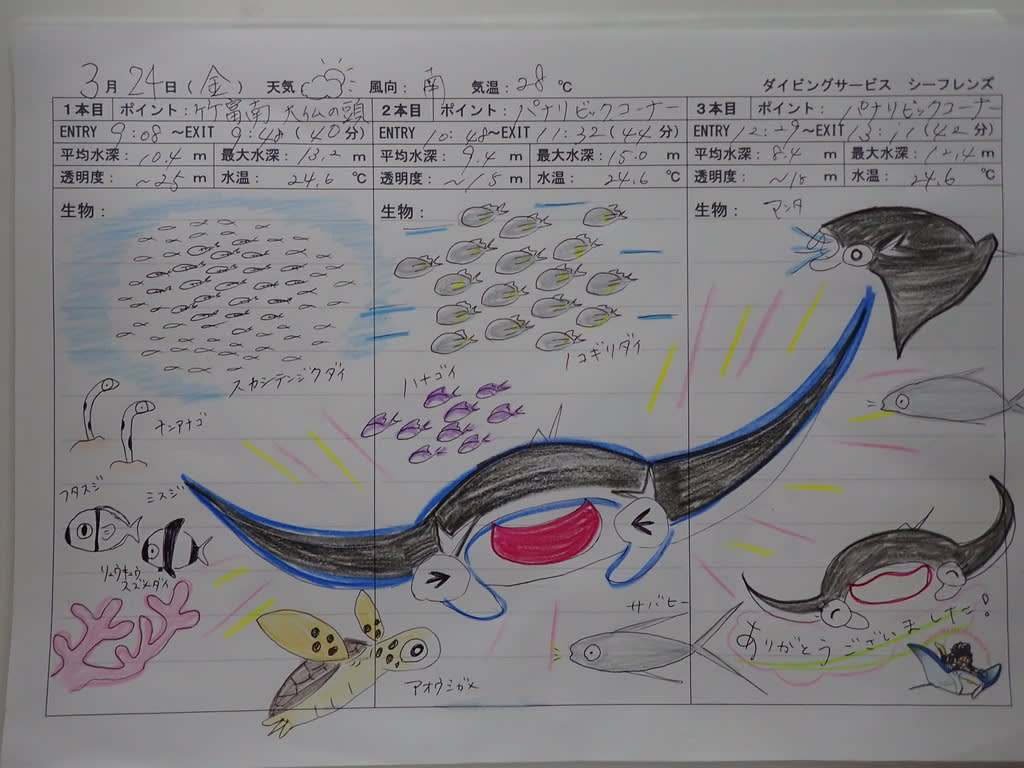 3月24日(金) 天気 風向:南 気温:28℃ ダイビングサービス シーフレンズ
1本目 ポイント:竹富南 大仏の頭
ENTRY 9:08 ~EXIT 9:48 (40分)
平均水深:10.4 m 最大水深:13.2 m
透明度:~25 m 水温:24.6 ℃
生物:
スカシテンジクダイ
チンアナゴ
フタスジ
ミスジ
リュウキュウスズメダイ
2本目 ポイント:パナリビックコーナー
ENTRY 10:48~EXIT 11:32(44分)
平均水深:9.4 m 最大水深:15.0 m
透明度:~15 m 水温:24.6 ℃
生物:
ノコギリダイ
ハナゴイ
サバヒー
アオウミガメ
3本目 ポイント:パナリビックコーナー
ENTRY 12:29~EXIT 13:11(42分)
平均水深:8.4 m 最大水深:12.4 m
透明度:~18 m 水温:24.6 ℃
生物:
マンタ
ありがとうございました!